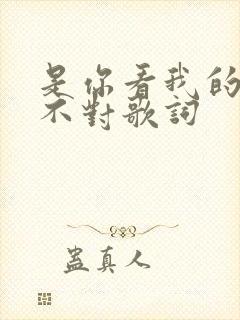 是你看我的
不對歌詞
蠱真人